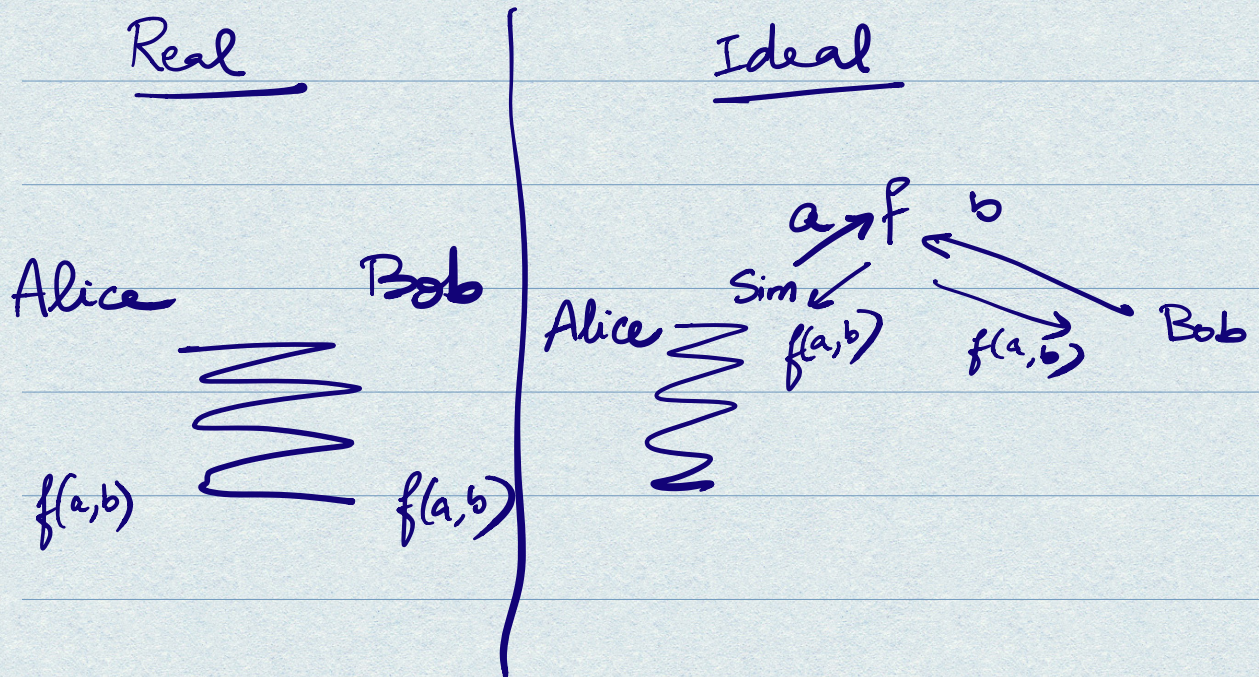 Real
Alice Bob
f(a,b) f(a,b)
Ideal
a f b
Sim
Alice f(a,b) f(a,b) Bob